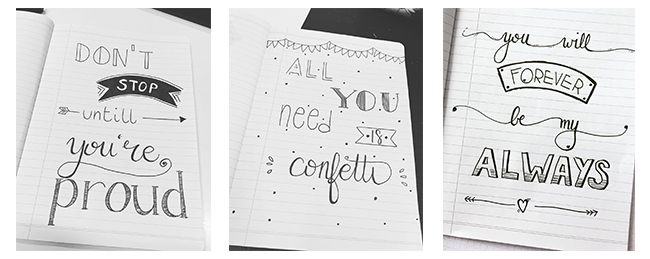 DON'T
STOP
untill
you're
proud
ALL
YOU
need
is
confetti
you will
FOREVER
be my
ALWAYS